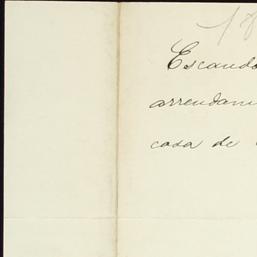 Escando
arrendami
casa de